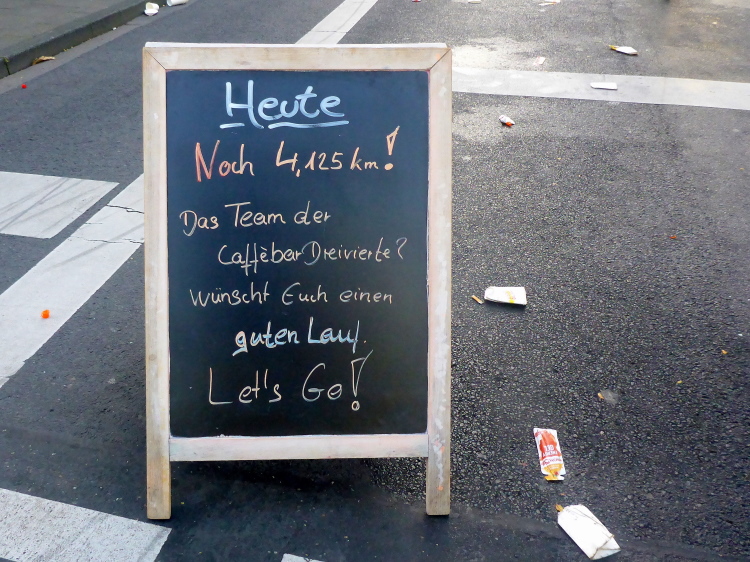 Heute
Noch 4,125 km!
Das Team der
Caffèbar Dreivierte?
Wünscht Euch einen
guten Lauf.
Let's Go!